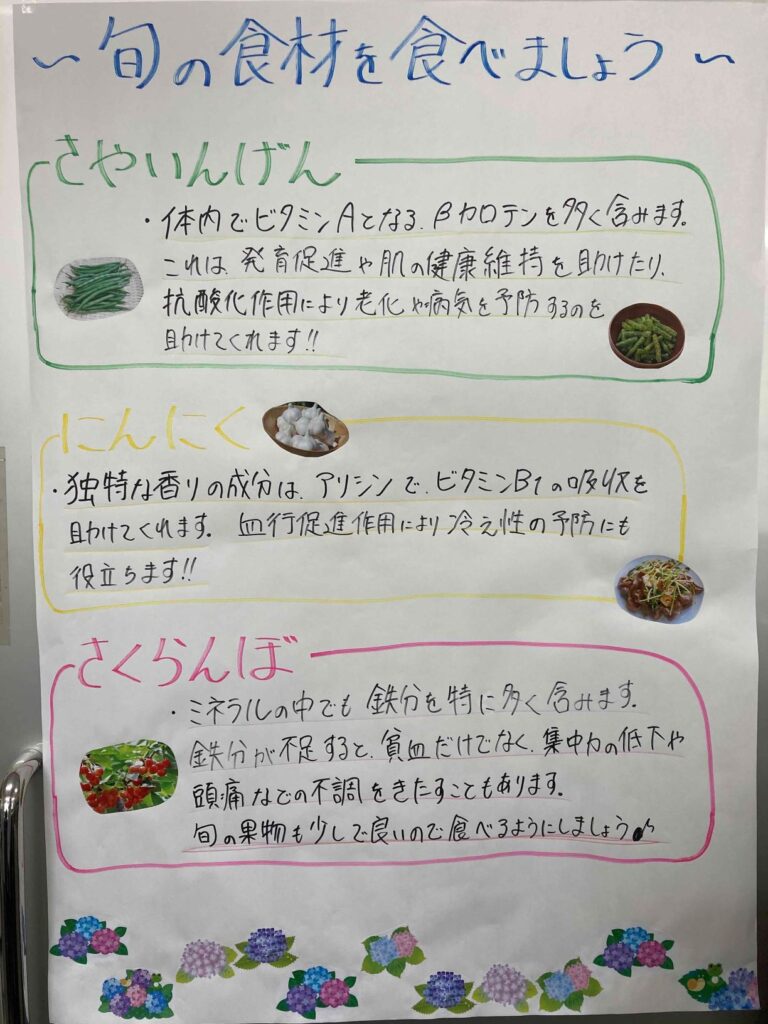 ～旬の食材を食べましょう～
さやいんげん
・体内でビタミンAとなる、βカロテンを多く含みます。
これは、発育促進や肌の健康維持を助けたり、
抗酸化作用により老化や病気を予防するのを
助けてくれます!!
にんにく
・独特な香りの成分は、アリシンで、ビタミンB1の吸収を
助けてくれます。血行促進作用により冷え性の予防にも
役立ちます!!
さくらんぼ
・ミネラルの中でも鉄分を特に多く含みます。
鉄分が不足すると、貧血だけでなく、集中力の低下や
頭痛などの不調をきたすこともあります。
旬の果物も少しで良いので食べるようにしましょう♪